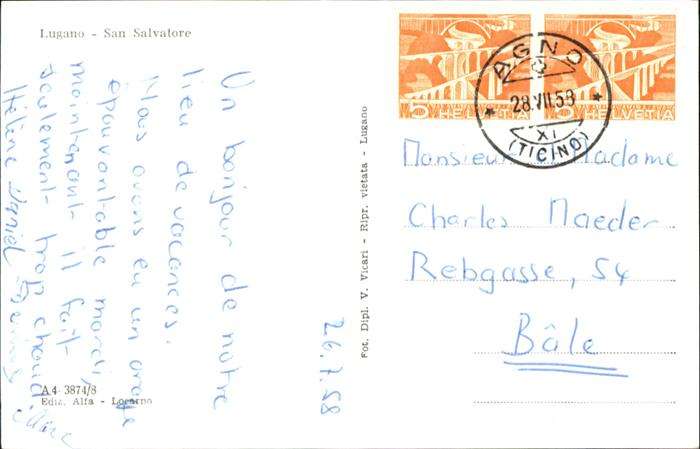 Lugano - San Salvatore
Un bonjour de notre
lieu de vacances.
Nous avons eu un orage
épouvantable mardi,
maintenant il fait
seulement trop chaud.
Hélène
26.7.58
A4 3874/8
Ediz. Alfa - Locarno
Fot. Dipl. V. Vicari - Ripr. vietata - Lugano
5 HELVETIA
5 HELVETIA
AGNO
28.VII.58
XI
(TICINO)
Monsieur Madame
Charles Maeder
Rebgasse, 54
Bâle